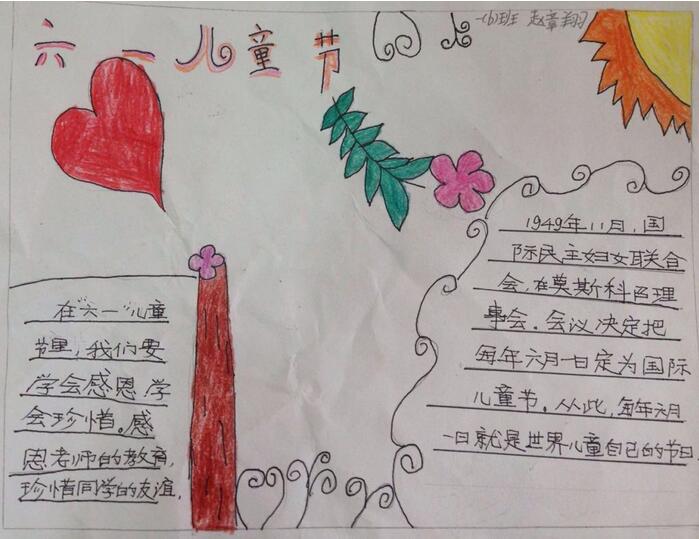 六一儿童节
一(6)班 赵章翔
1949年11月,国
际民主妇女联合
会,在莫斯科召理
事会.会议决定把
每年六月一日定为国际
儿童节.从此,每年六月
一日就是世界儿童自己的节日.
在“六一”儿童
节里,我们要
学会感恩,学
会珍惜。感
恩老师的教育,
珍惜同学的友谊.